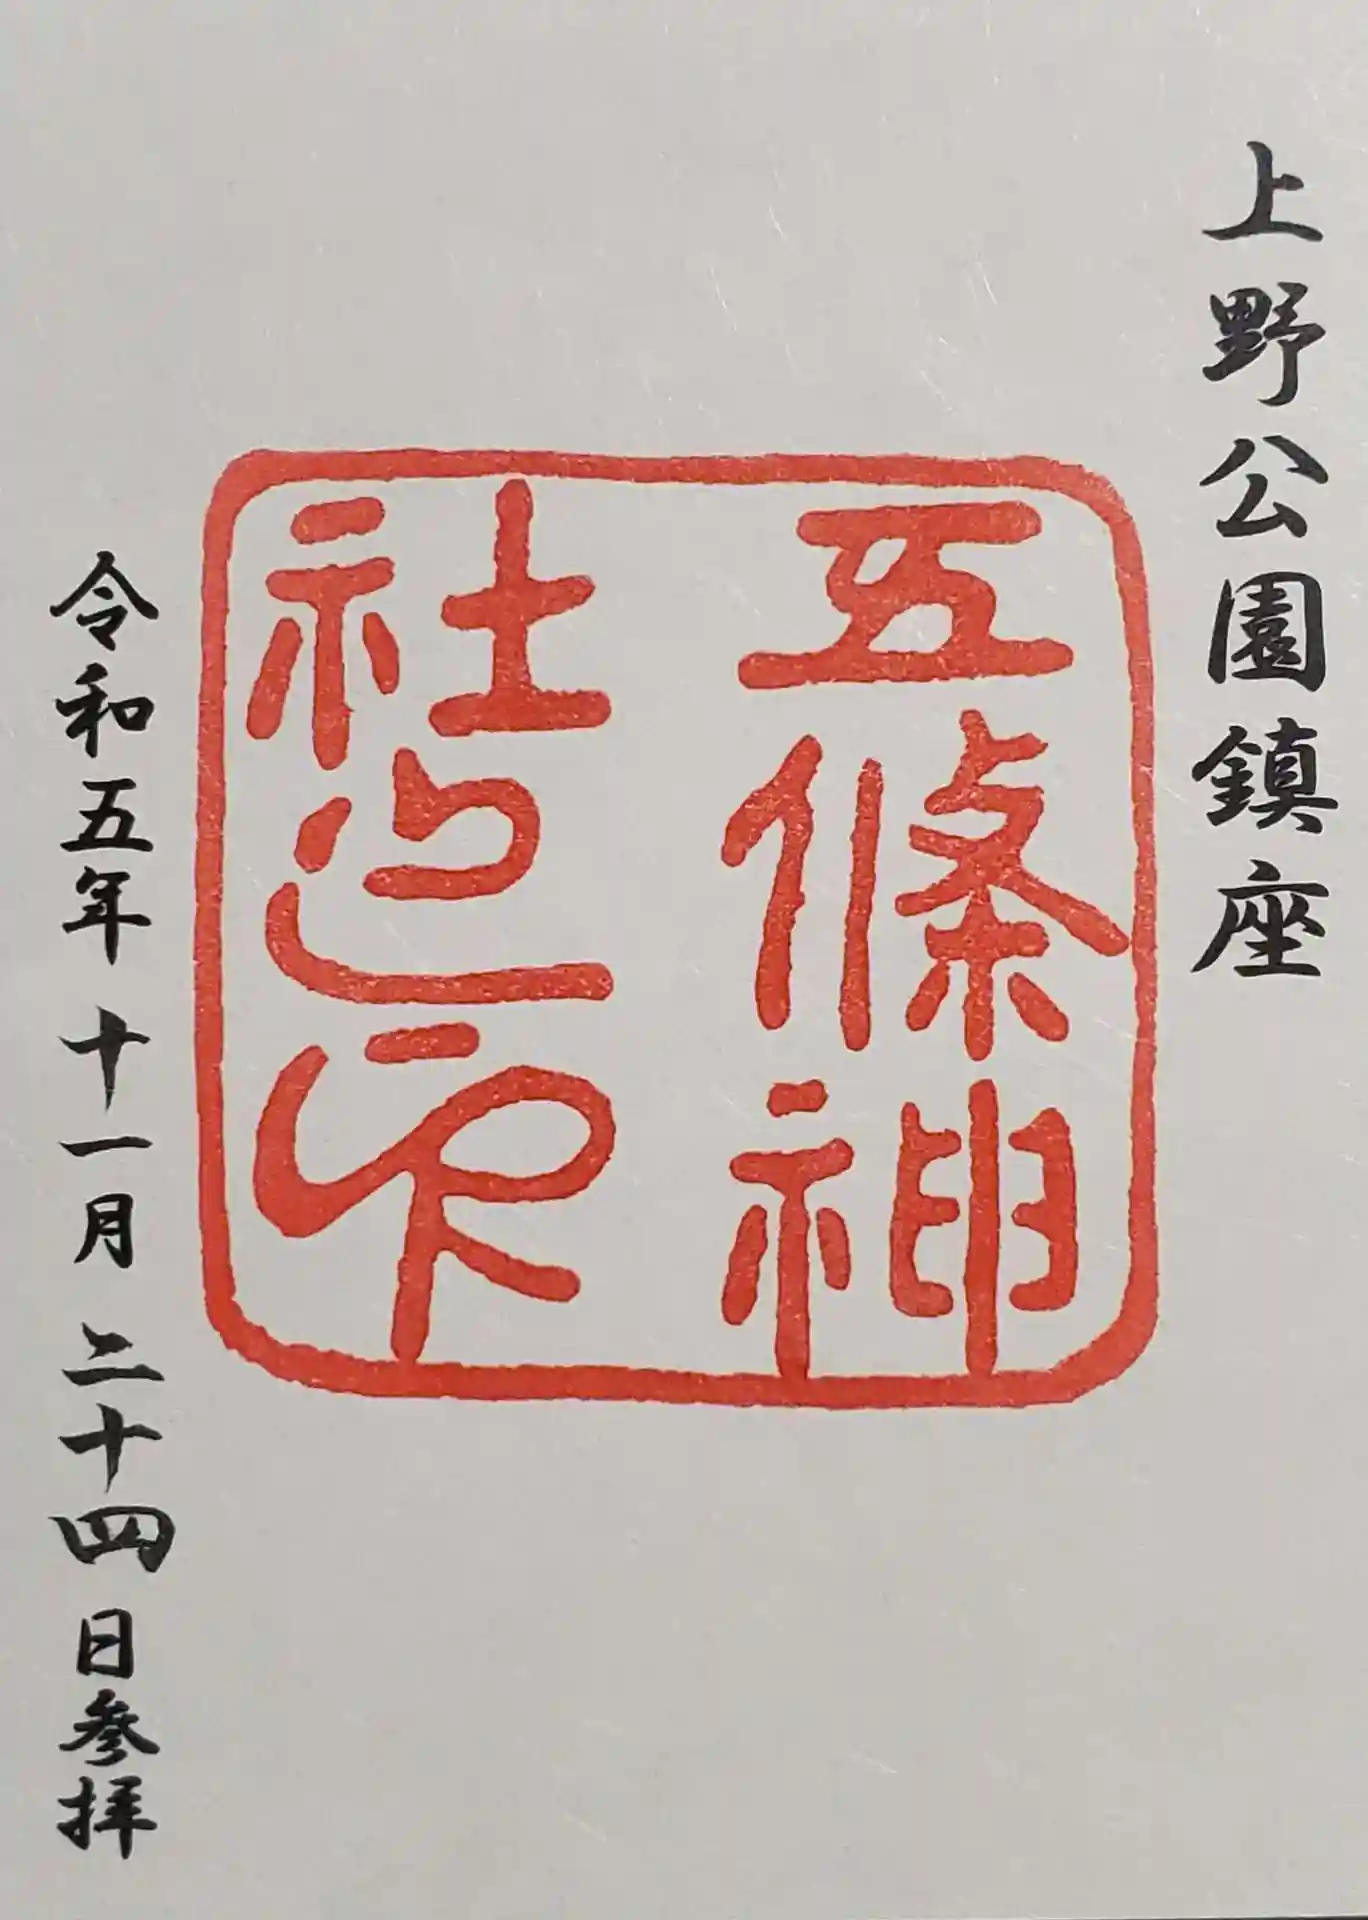 上野公園鎮座
五條神
社之印
令和五年 十一月 二十四日参拝